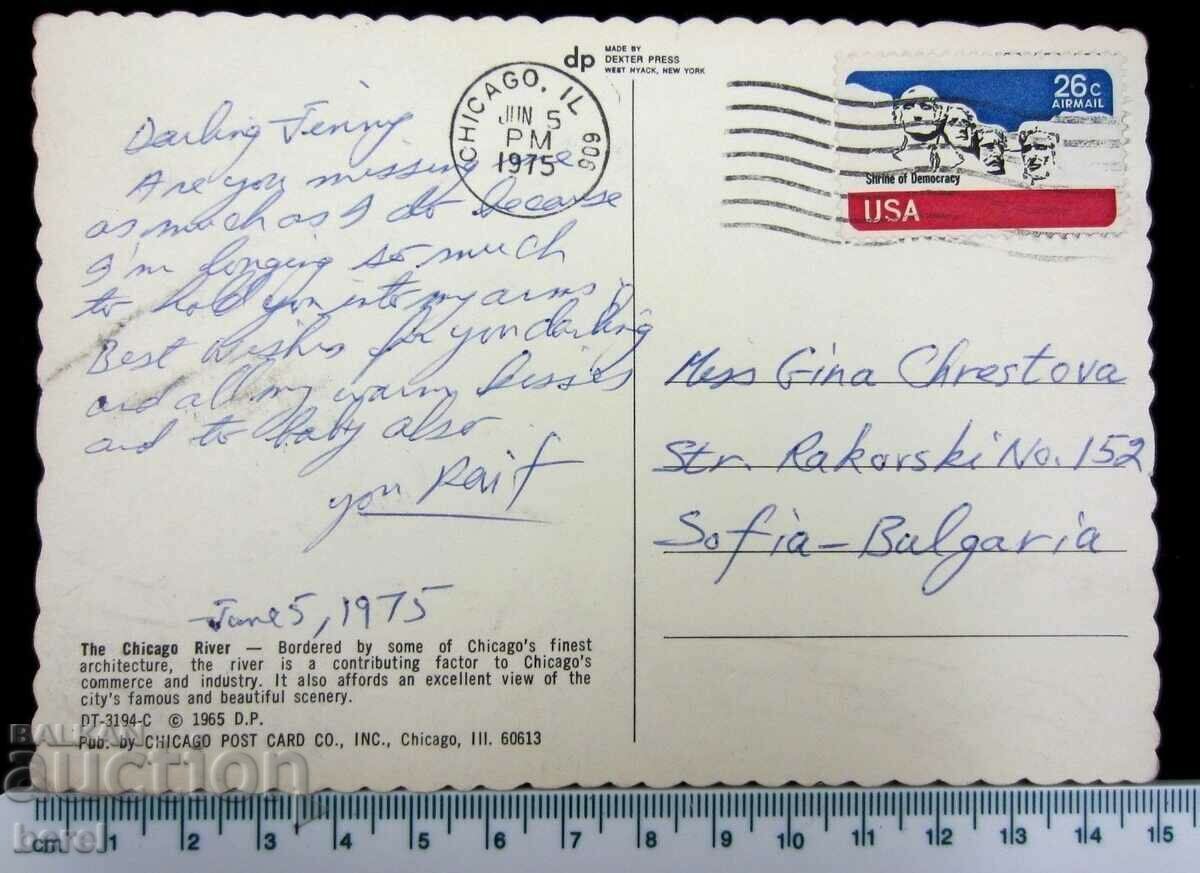 dp
MADE BY
DEXTER PRESS
WEST NYACK, NEW YORK
CHICAGO, IL
JUN 5
PM
1975
606
26c
AIRMAIL
Shrine of Democracy
USA
Darling Jenny
Are you missing me
as much as I do because
I'm longing so much
to hold you into my arms
Best Wishes for you darling
and all my warm kisses
and to baby also
you Raif
June 5, 1975
Miss Gina Chrestova
Str. Rakovski No. 152
Sofia - Bulgaria
The Chicago River — Bordered by some of Chicago's finest
architecture, the river is a contributing factor to Chicago's
commerce and industry. It also affords an excellent view of the
city's famous and beautiful scenery.
DT-3194-C © 1965 D.P.
Pub. by CHICAGO POST CARD CO., INC., Chicago, Ill. 60613
BALKAN
auction
berel
cm 1 2 3 4 5 6 7 8 9 10 11 12 13 14 15